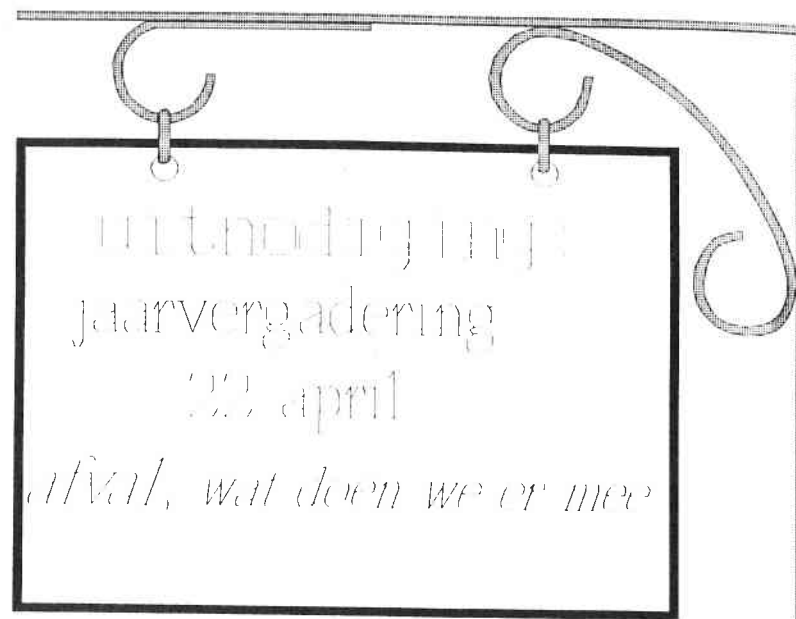 uitnodiging:
jaarvergadering
22 april
afval, wat doen we er mee